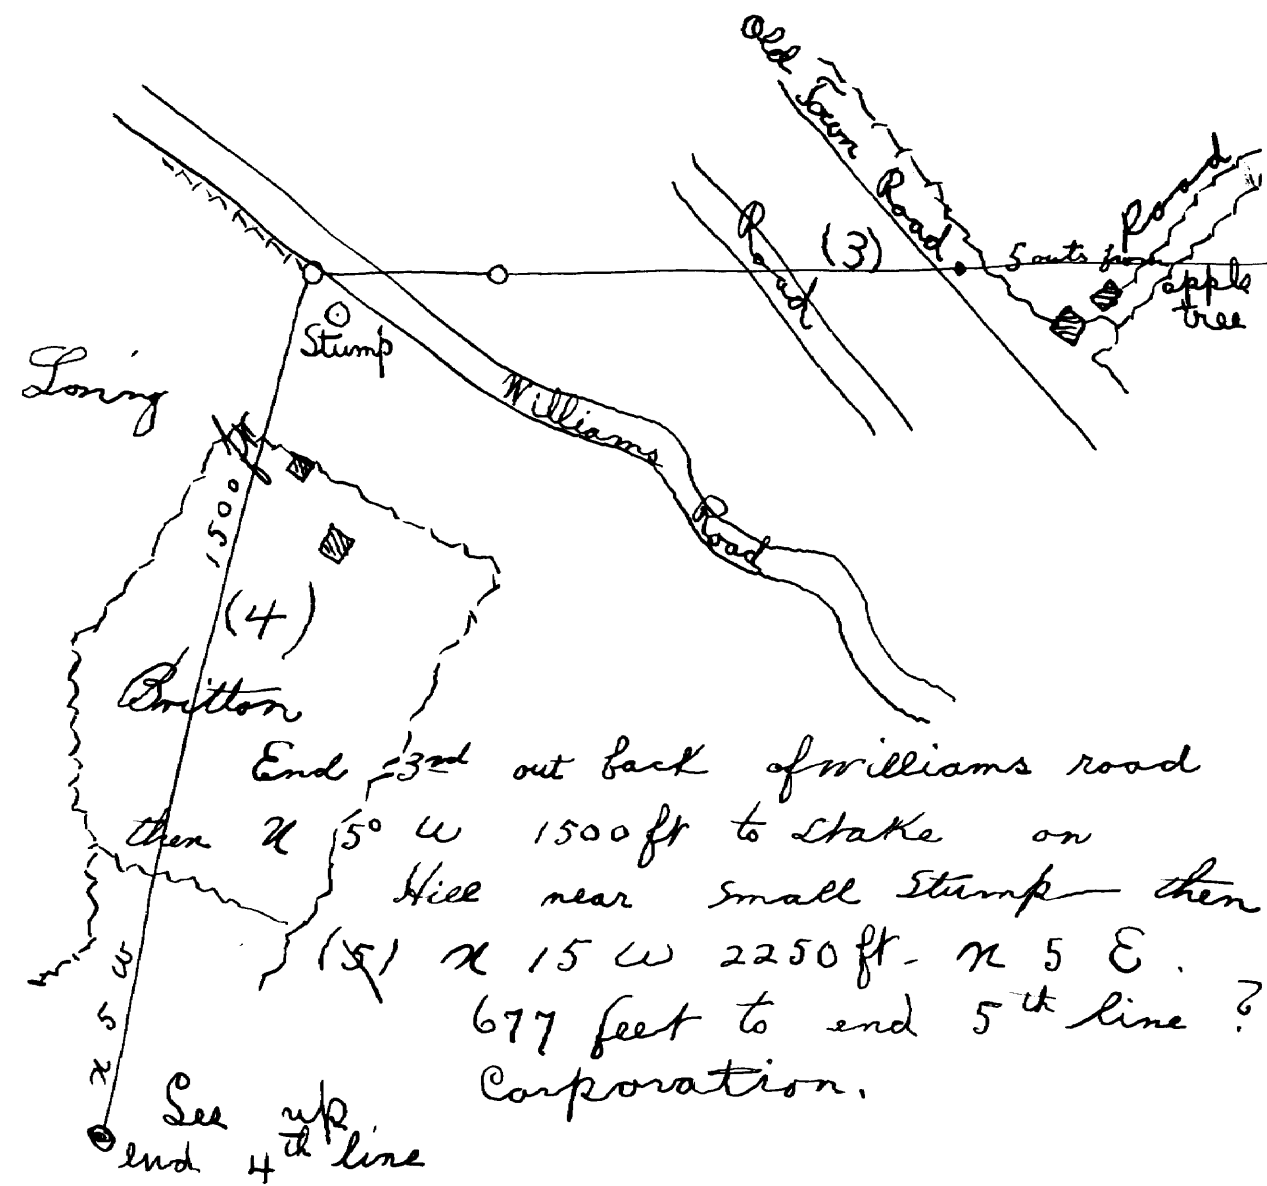 Old Town Road
Road
Road
(3)
5 outs from
apple
tree
Stump
Williams Road
Loring
1500
(4)
Britton
End 3rd out back of Williams road
then N 5° W 1500 ft to Stake on
Hill near small Stump then
(5) N 15 W 2250 ft - N 5 E.
677 feet to end 5th line ?
Corporation.
N 5 W
See up
end 4th line